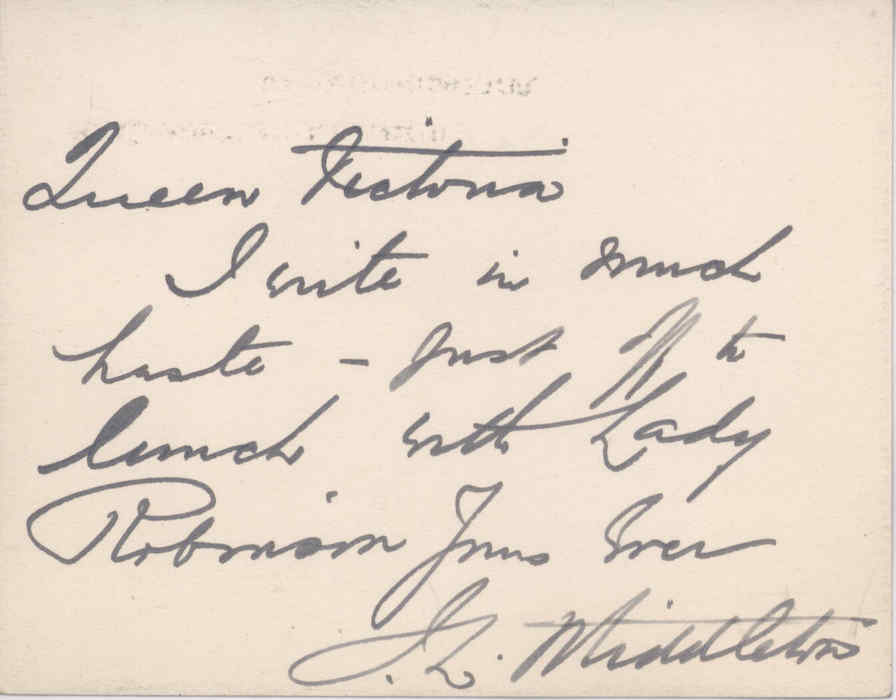 Queen Victoria
I write in much
haste – just off to
lunch with Lady
Robinson Yours Ever
J. L. Middleton